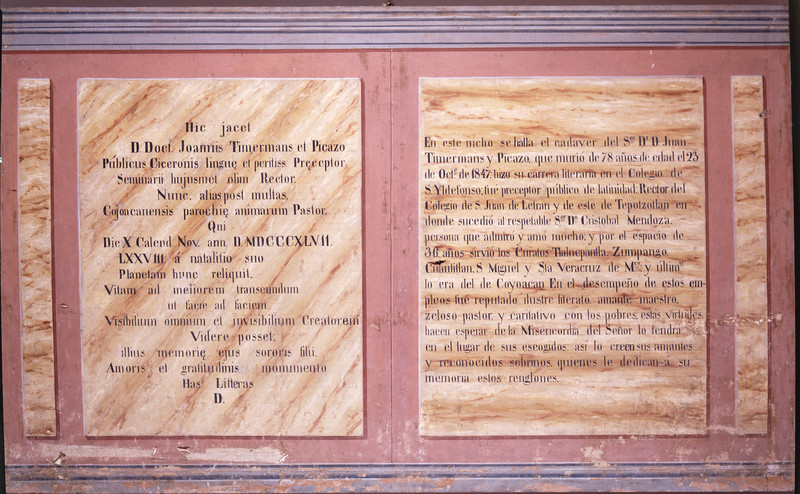 Hic jacet
D. Doct. Joannis Timermans et Picazo
Publicus Ciceronis linguę et peritiss. Pręceptor
Seminarii hujusmet olim Rector.
Nunc, alias post multas,
Cojoacanensis parochię animarum Pastor,
Qui
Die X Calend Nov. ann. D. MDCCCXLVII.
LXXVIII á natalitio suo
Planetam hunc reliquit,
Vitam ad meliorem transeundum
ut facie ad faciem
Visibilium omnium et invisibilium Creatorem
Videre posset;
illius memorię ejus sororis filii,
Amoris et gratitudinis monumento
Has Litteras
D.
En este nicho se halla el cadaver del Sor. Dr. D. Juan
Timermans y Picazo, que murió de 78 años de edad el 23
de Octe. de 1847; hizo su carrera literaria en el Colegio de
S. Yldefonso, fué preceptor público de latinidad; Rector del
Colegio de S. Juan de Letran y de este de Tepotzotlan en
donde sucedió al respetable Sor. Dr. Cristobal Mendoza,
persona que admiró y amó mucho; y por el espacio de
36 años sirvió los Curatos Tlalnepantla, Zumpango,
Cuautitlan, S. Miguel y Sta Veracruz de Mco; y últim
lo era del de Coyoacan En el desempeño de estos em-
pleos fué reputado ilustre literato, amante maestro,
zeloso pastor, y caritativo con los pobres, estas virtudes
hacen esperar de la Misericordia del Señor lo tendrá
en el lugar de sus escogidos: asi lo creen sus amantes
y reconocidos sobrinos, quienes le dedican a su
memoria estos renglones.